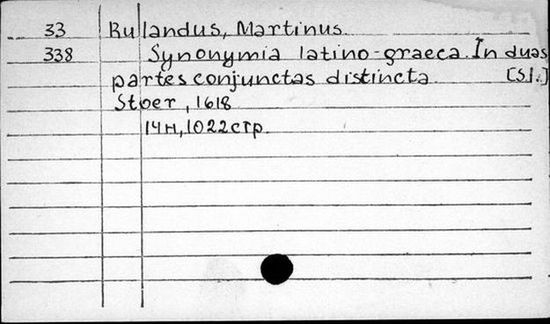 33 Rulandus, Martinus
338 Synonymia latino-graeca. In duas
partes conjunctas distincta. [S.l.]
Stoer, 1618
14н, 1022стр.